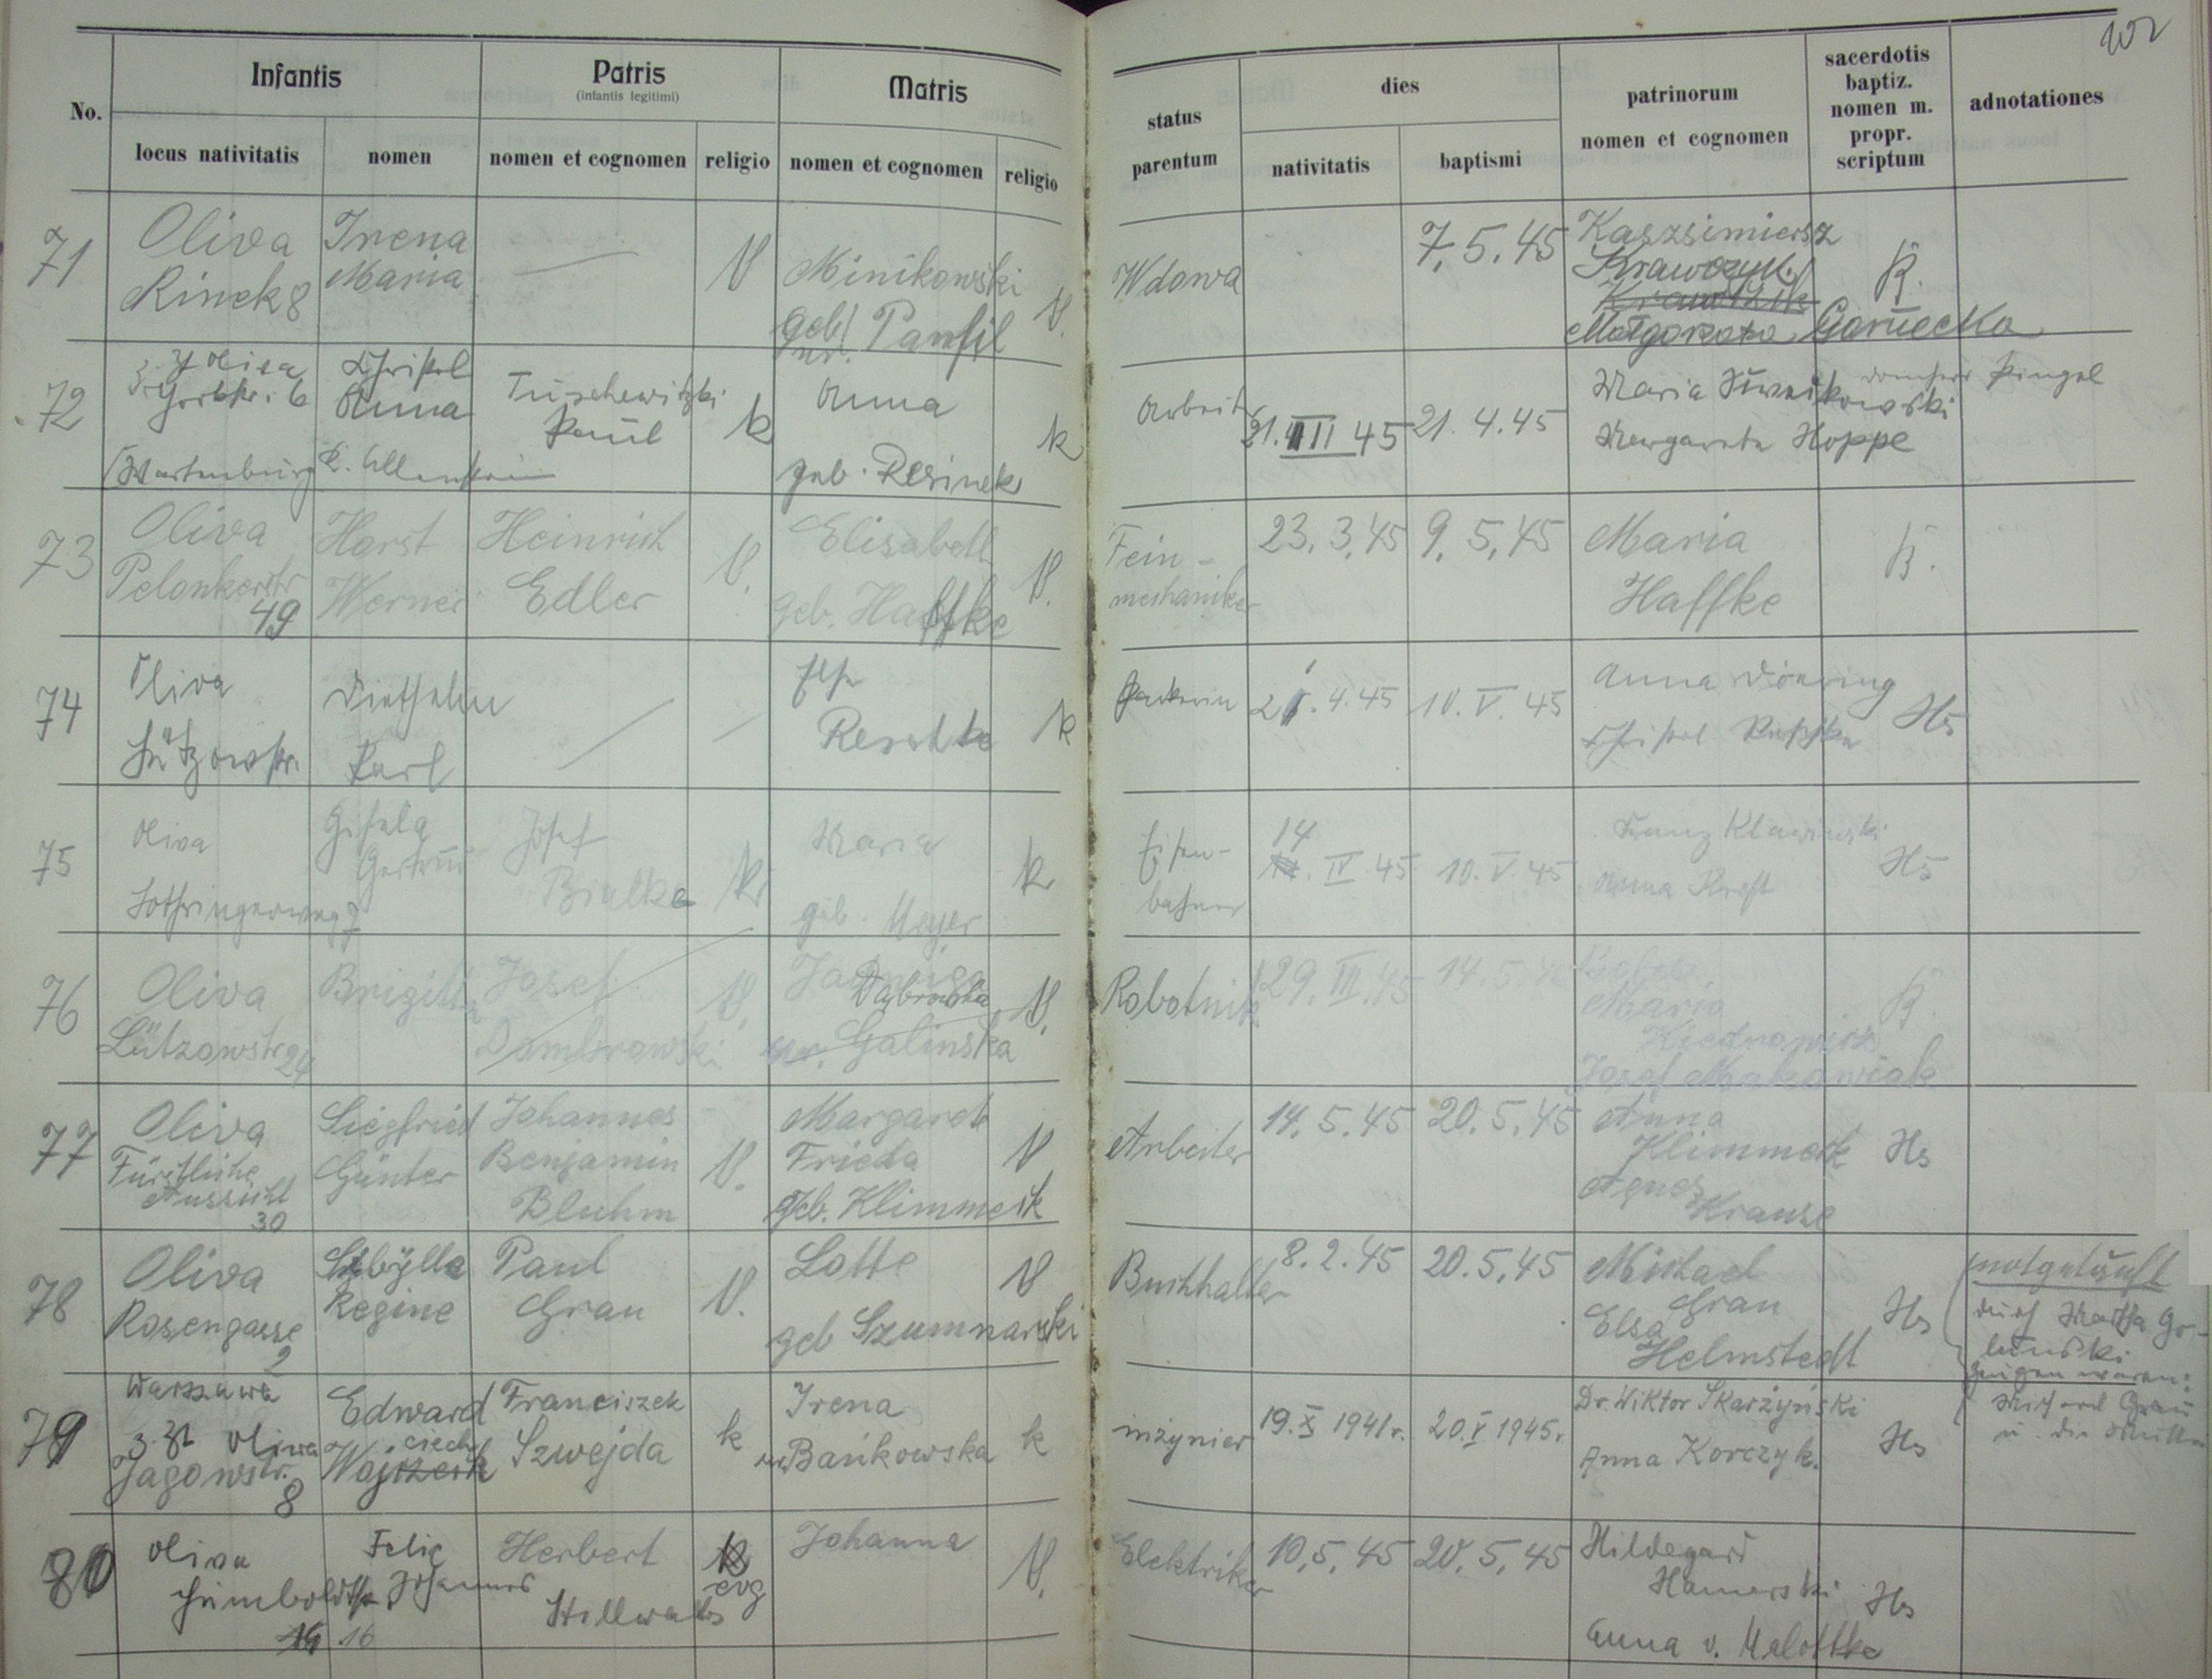 102
No.
Infantis
locus nativitatis
nomen
Patris
(infantis legitimi)
nomen et cognomen
religio
Matris
nomen et cognomen
religio
status
parentum
dies
nativitatis
baptismi
patrinorum
nomen et cognomen
sacerdotis
baptiz.
nomen m.
propr.
scriptum
adnotationes
71
Oliva
Rinek 8
Irena
Maria
—
Minikowski
geb.
Panfil
Wdowa
7. 5. 45
Kaszsimiersz
Krawczyk
Małgorzata Garnecka
72
z. Zt Oliva
6
Wartenburg K. Allenstein
Christel
Anna
Tuschewitzki
Paul
k
Anna
geb. Resinek
k
Arbeiter
21. III 45
21. 4. 45
Maria
Margareta Hoppe
Domherr Pingel
73
Oliva
Pelonkerstr
49
Horst
Werner
Heinrich
Edler
Elisabeth
geb. Haffke
Fein-
mechaniker
23. 3. 45
9. 5. 45
Maria
Haffke
74
Oliva
Lützowstr.
Diethelm
Karl
Else
Reschke
k
21. 4. 45
10. V. 45
Anna Döering
Christel
Hs
75
Oliva
Lothringerweg 7
Gisela
Gertrud
Josef
Bialke
k
Maria
geb. Meyer
k
Eisen-
bahner
14
IV 45
10. V. 45
Franz Klawinski
Anna Kreft
Hs
76
Oliva
Lützowstr 24
Brigitta
Josef
Dombrowski
Jadwiga
Dąbrowska
ur. Galinska
Robotnik
29. III. 45
14. 5. 45
Maria
Josef Makowiak
77
Oliva
Fürstliche
Aussicht
30
Siegfried
Günter
Johannes
Benjamin
Bluhm
Margareta
Frieda
geb. Klimmeck
Arbeiter
14. 5. 45
20. 5. 45
Anna
Klimmeck
Agnes
Krause
Hs
78
Oliva
Rosengasse
2
Sybylla
Regine
Paul
Grau
Lotte
geb Szumnarski
Buchhalter
8. 2. 45
20. 5. 45
Michael
Grau
Elsa
Helmstedt
Hs
notgetauft
durch Martha Go-
lunski
Zeugen waren:
Michael Grau
u. die Mutter
79
Warszawa
z. Zt Oliwa
Jagowstr.
8
Edward
Wojciech
Franciszek
Szwejda
k
Irena
ur Bańkowska
k
inżynier
19. X 1941 r.
20. V 1945 r.
Dr. Wiktor Skarżyński
Anna Korczyk.
Hs
80
Oliva
Humboldtstr.
16
Felix
Johannes
Herbert
evg
Johanna
Elektriker
10. 5. 45
20. 5. 45
Hildegard
Hamerski
Anna v. Malottke
Hs